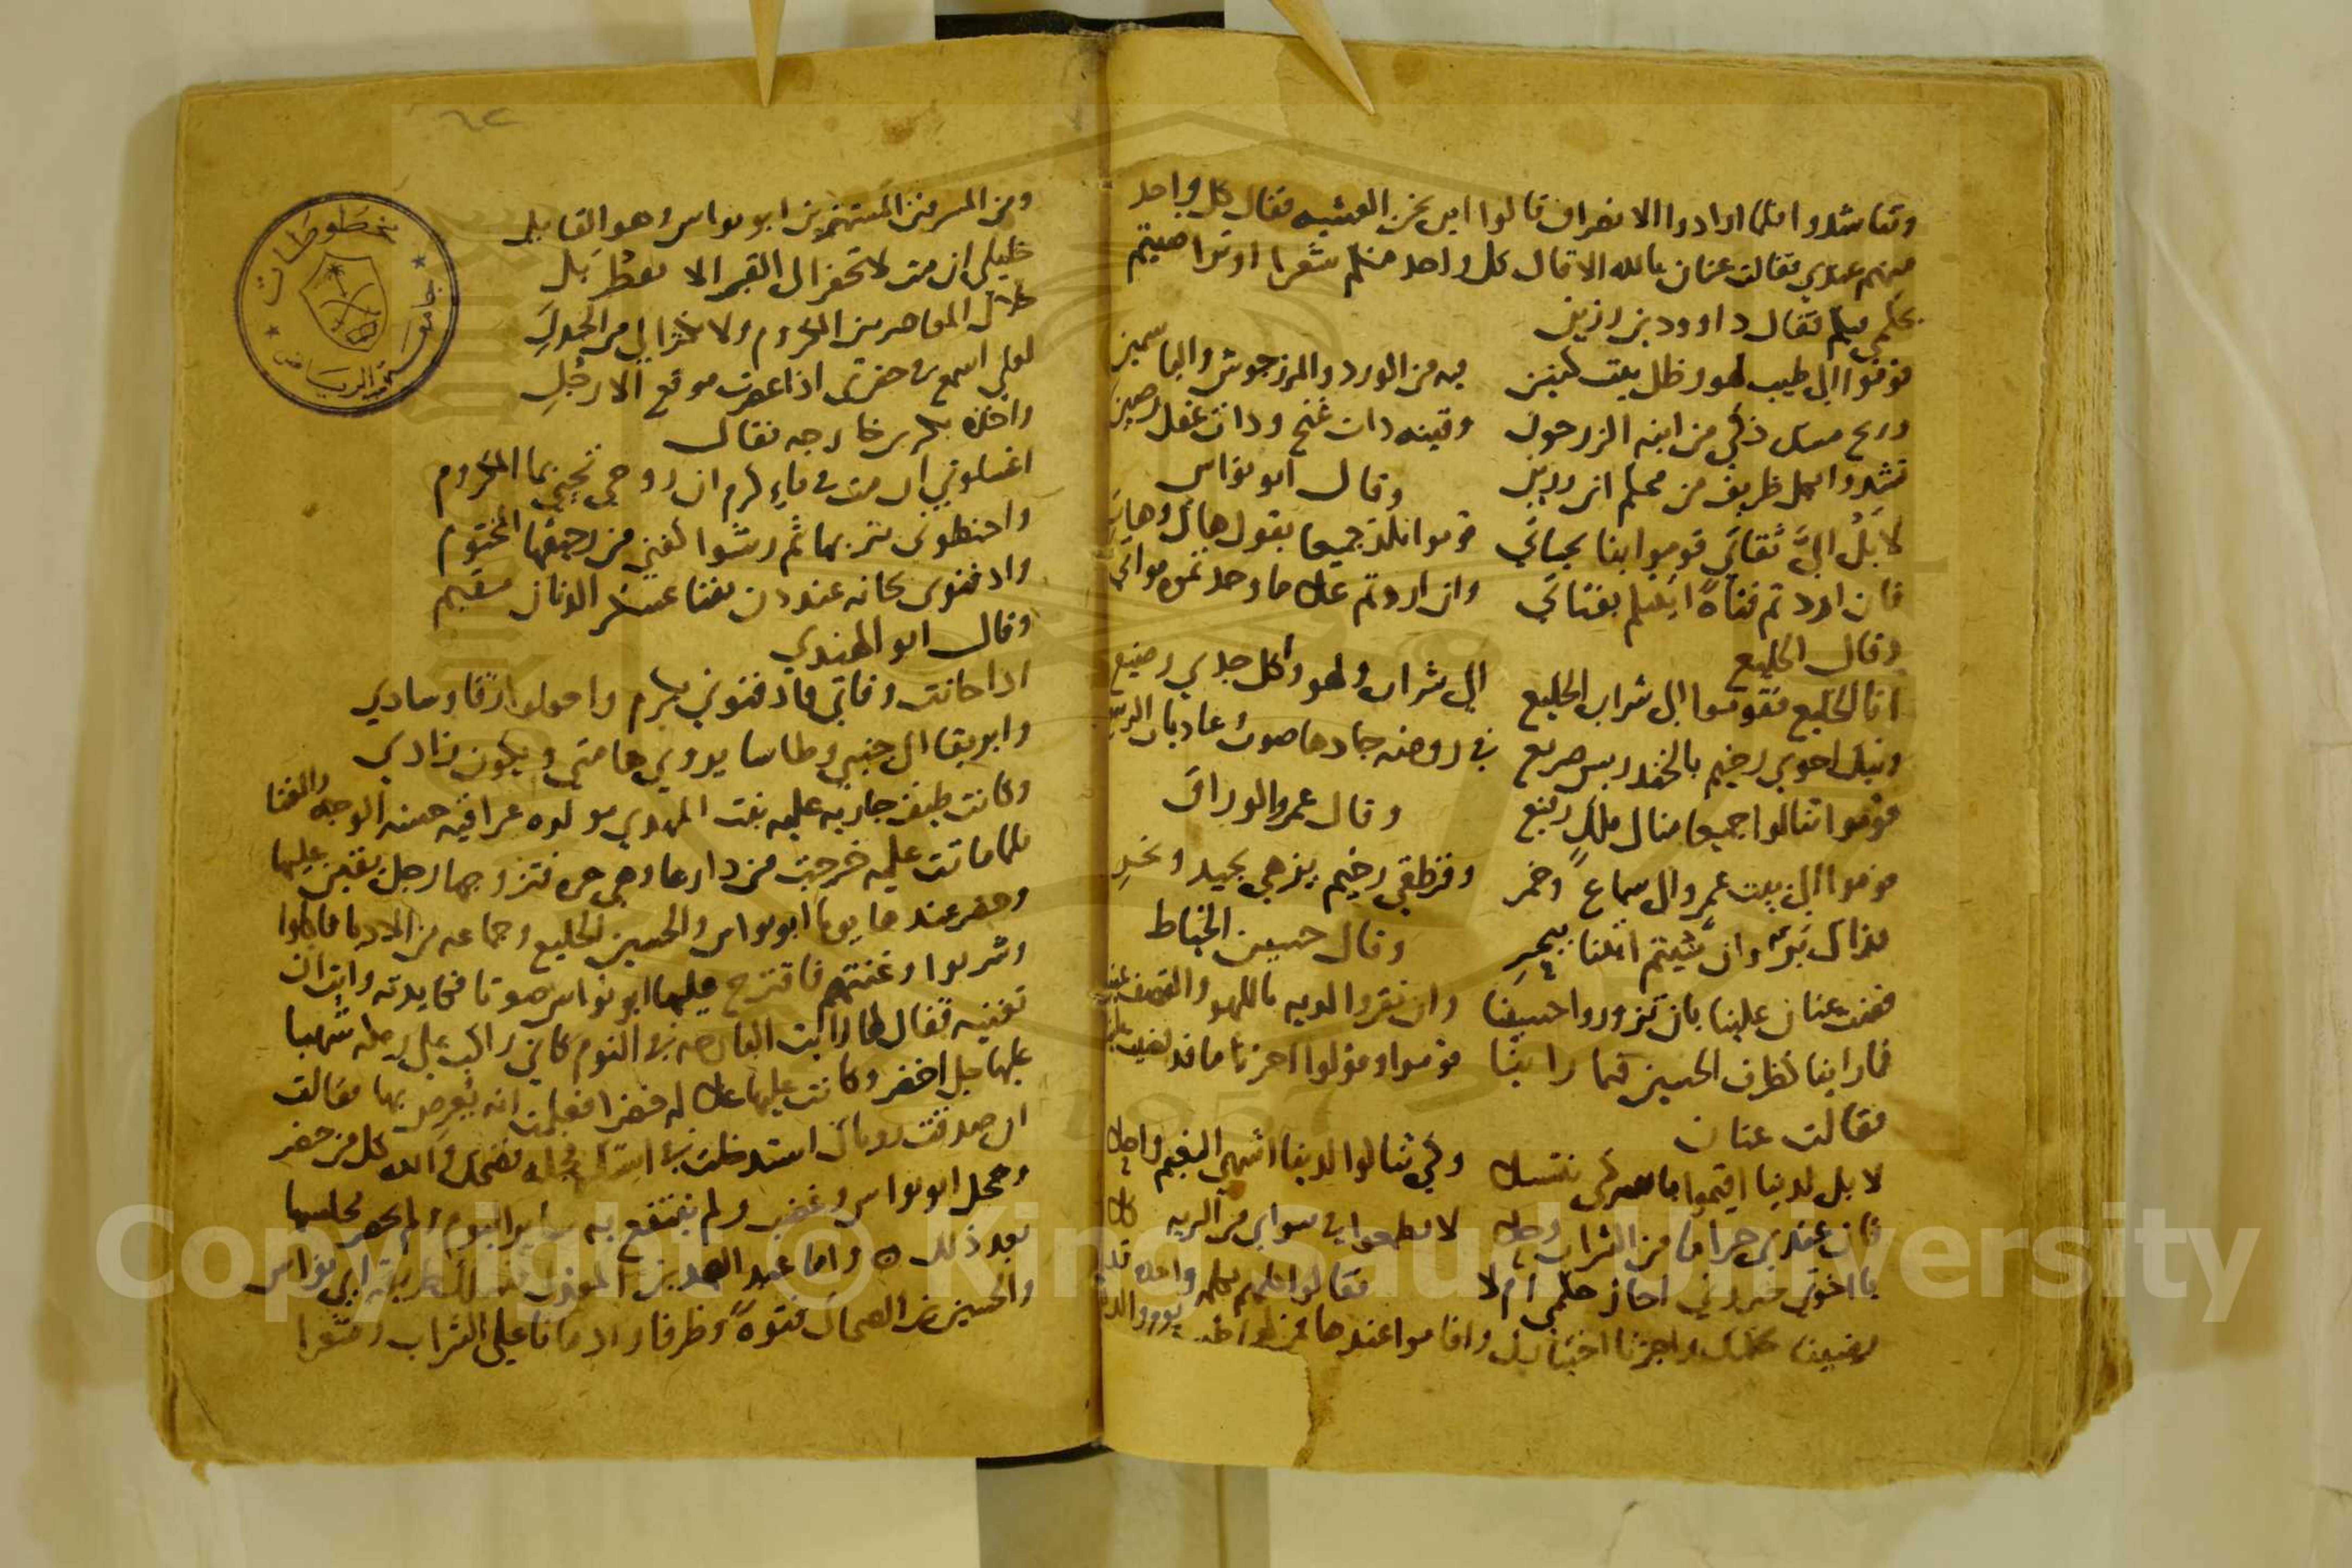 وتناشدوا فلما ارادوا الانصراف قالوا اين نحن العشيه فقال كل واحد
منهم عندي فقالت عنان بالله الا قال كل واحد منكم شعرا وتراضيتم
بحكمي فيكم فقال داوود بن رزين
قوموا الى طيب لهو وظل بيت كنين فيه من الورد والمرزجوش والياسمين
وريح مسك ذكي من ابنه الزرحون وقينه ذات غنج وذات عقل رصين
تشدوا بكل ظريف من محكم ابن رزين وقال ابو نواس
لا بل اليَّ ثقاتي قوموا بنا بحياتي قوموا نلذ جميعا بقول هاك وهات
فان اردتم فتاة اتيتكم بفتاتي وان اردتم
وقال الخليع
انا الخليع فقوموا الى شراب الخليع الى شراب ولهو واكل جدي رضيع
ونيل احوي رخيم بالخندريس صريع في روضه جادها صوب غاديات الربيع
قوموا تنالوا جميعا منال ملك رفيع وقال عمرو الوراق
قوموا الى بيت عمرو الى سماع وخمر وقرطقي رخيم يزهي بجيد ونحر
فذاك بر وان شيتم اتينا ببحر وقال حسين الخياط
قضت عنان علينا بان تزوروا حسينا وان تقروا لديه باللهو والقصف عينا
فما راينا كظرف الحسين فيما راينا قوموا وقولوا اجزنا ما قد
فقالت عنان
لا بل لدينا اقيموا وكي تنالوا لدينا اشهي النعيم
فان عندي حراما من الشراب وحل لا تطمعوا في سوايي من البريه كل
يا اخوتي خبروني اجاز حكمي ام لا فقالوا كلهم
واجزنا واقاموا عندها
ومن المسرفين المستهترين ابو نواس وهو القايل
خليلي ان مت لا تحفرا لي القبر الا بقطربل
خلال المعاصر من الكروم ولا تدنيا لي من الجدول
لعلي اسمع في حفرتي اذا عصرت موقع الارجل
واخذه بكر بن خارجه فقال
اغسلوني ان مت في ماء كرم ان روحي تحيي بما الكروم
واحنطوني بتربها ثم رشوا كفني من رحيقها المختوم
وادفنوني بحانه عند دن بفنا الدنان مقيم
وقال ابو الهندي
اذا حانت وفاتي فادفنوني بكرم واجعلوا زقا وسادي
وابريقا الى جنبي وطاسا يروي هامتي ويكون زادي
وكانت جاريه عليه بنت المهدي مولده عراقيه حسنه الوجه والغنا
فلما ماتت عليه خرجت من دارها وهي حره فتزوجها رجل يقين عليها
وحضر عندها يوما ابو نواس والحسين الخليع وجماعه من الادبا فاكلوا
وشربوا وغنتهم فاقترح عليها ابو نواس صوتا فكايدته وابت ان
تغنيه فقال لها رايت البارحه في النوم كاني راكب على بغله شهبا
عليها جل اخضر وكانت عليها غلاله خضرا فعلمت انه يعرض بها فقالت
ان صدقت روياك استدخلت في استك فجله فضحك والله كل من حضر
وخجل ابو نواس وغضب ولم ينتفع به ساير اليوم ولم يحضر مجلسها
بعد ذلك واما عبد الصمد بن المعذل فسلك طريقة ابي نواس
والحسين بن الضحاك فتوة وظرفا وادمانا على الشراب وشعرا
مخطوطات
جامعة الرياض
Copyright © King Saud University
1957